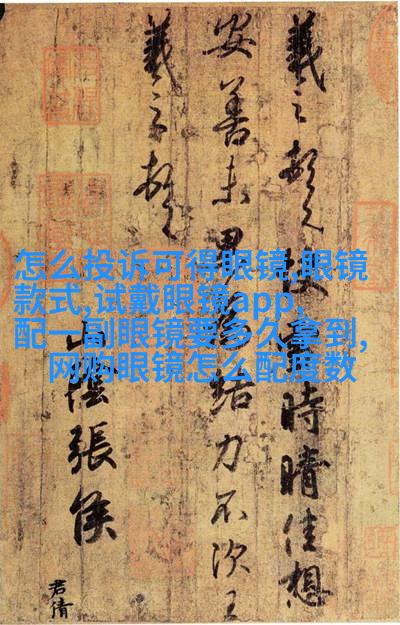 怎么投诉可得眼镜,眼镜
款式,试戴眼镜app,
配一副眼镜要多久拿到,
网购眼镜怎么配度数
羲之頓首快雪時晴佳想
安善未果為結力不次王
羲之頓首
山陰張侯
君倩